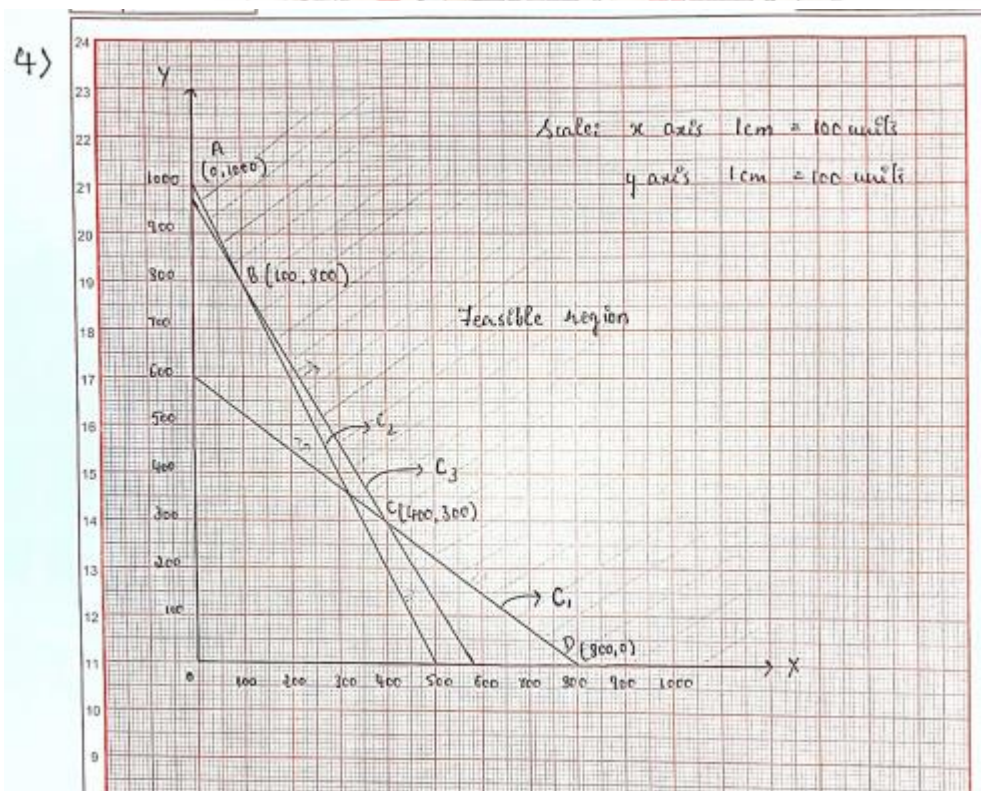 4)
24
23
22
21
20
19
18
17
16
15
14
13
12
11
10
9
Y
Scale: x axis 1cm = 100 units
y axis 1cm = 100 units
A
(0,1000)
1000
900
800
700
600
500
400
300
200
100
B (100, 800)
Feasible region
C2
C3
C(400, 300)
C1
D (800,0)
X
0 100 200 300 400 500 600 700 800 900 1000